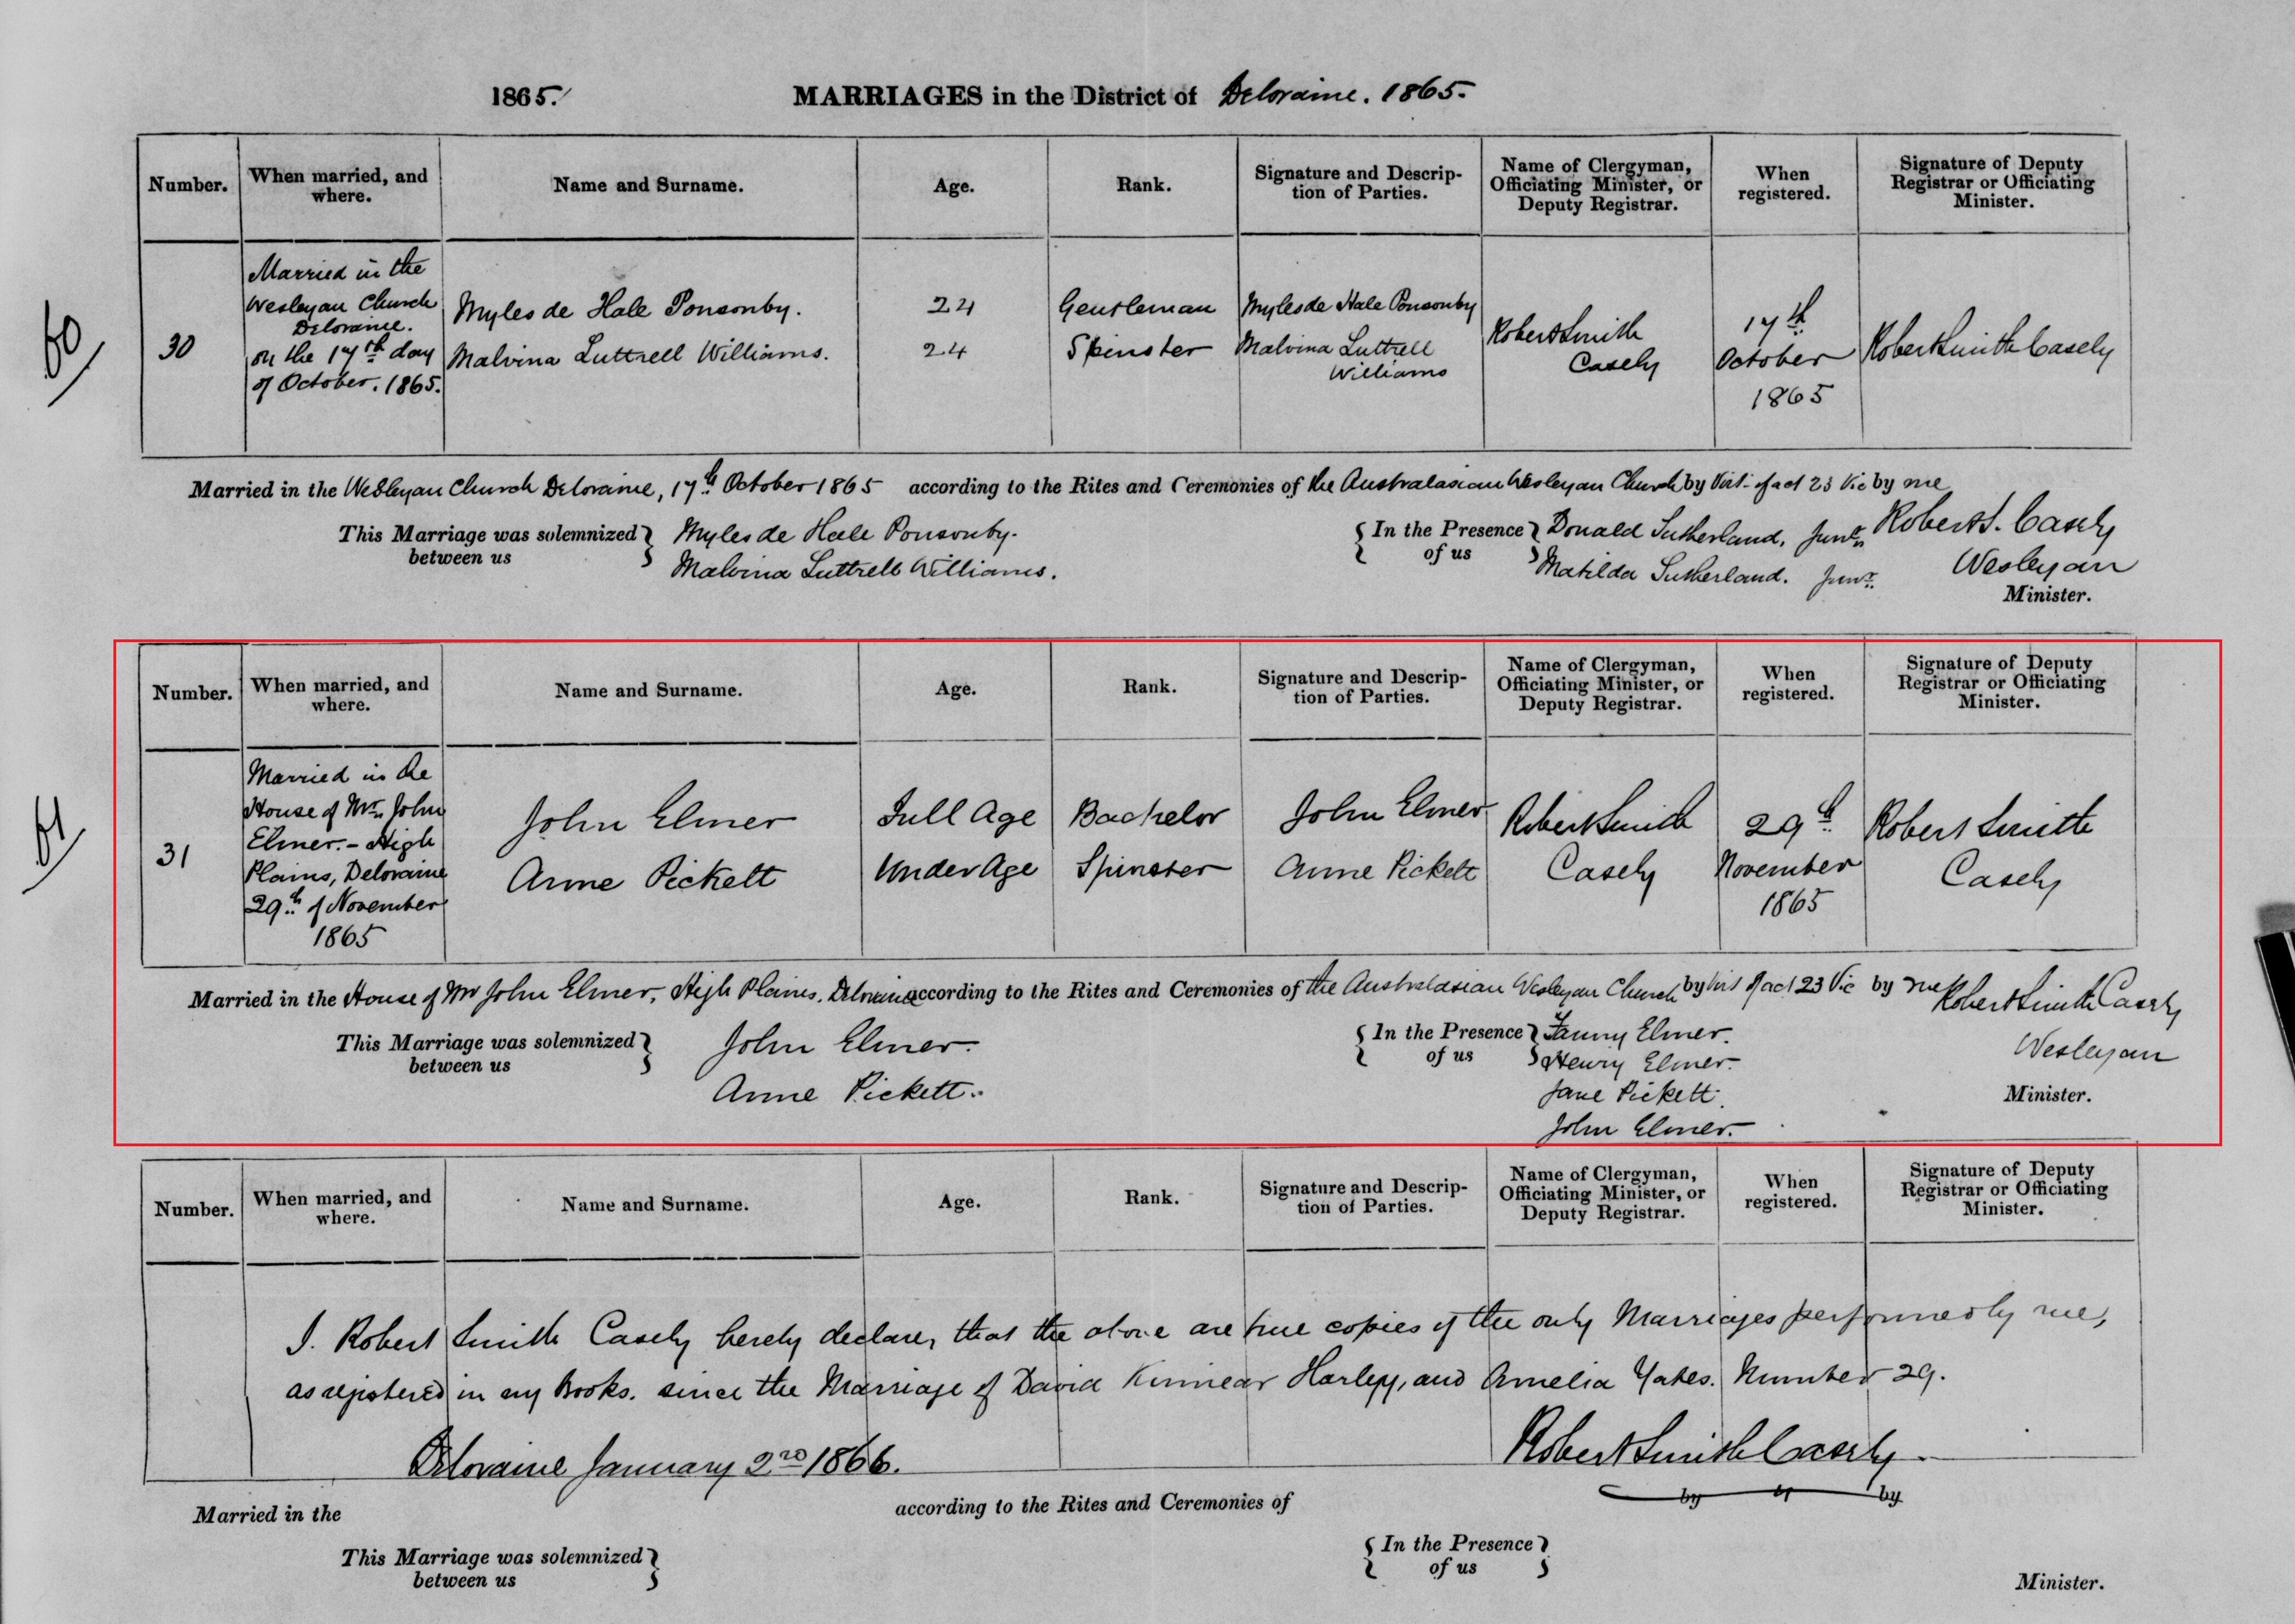 1865.
MARRIAGES in the District of Deloraine. 1865.
Number.
When married, and where.
Name and Surname.
Age.
Rank.
Signature and Descrip-
tion of Parties.
Name of Clergyman,
Officiating Minister, or
Deputy Registrar.
When
registered.
Signature of Deputy
Registrar or Officiating
Minister.
60
30
Married in the
Wesleyan Church
Deloraine.
on the 17th day
of October. 1865.
Myles de Hale Ponsonby.
Malvina Luttrell Williams.
24
24
Gentleman
Spinster
Myles de Hale Ponsonby
Malvina Luttrell
Williams
Robert Smith
Casely
17th
October
1865
Robert Smith Casely
Married in the Wesleyan Church Deloraine, 17th October 1865 according to the Rites and Ceremonies of the Australasian Wesleyan Church by Virt. of act 23 Vic by me
This Marriage was solemnized
between us
Myles de Hale Ponsonby.
Malvina Luttrell Williams.
In the Presence
of us
Donald Sutherland, Junr.
Matilda Sutherland. Junr.
Robert S. Casely
Wesleyan
Minister.
Number.
When married, and
where.
Name and Surname.
Age.
Rank.
Signature and Descrip-
tion of Parties.
Name of Clergyman,
Officiating Minister, or
Deputy Registrar.
When
registered.
Signature of Deputy
Registrar or Officiating
Minister.
61
31
Married in the
House of Mr. John
Elmer. - High
Plains, Deloraine
29th of November
1865
John Elmer
Anne Pickett
Full Age
Under Age
Bachelor
Spinster
John Elmer
Anne Pickett
Robert Smith
Casely
29th
November
1865
Robert Smith
Casely
Married in the House of Mr John Elmer, High Plains, Deloraine according to the Rites and Ceremonies of the Australasian Wesleyan Church by Virt of act 23 Vic by me
Robert Smith Casely
Wesleyan
Minister.
This Marriage was solemnized
between us
John Elmer.
Anne Pickett.
In the Presence
of us
Fanny Elmer.
Henry Elmer.
Jane Pickett.
John Elmer.
Number.
When married, and
where.
Name and Surname.
Age.
Rank.
Signature and Descrip-
tion of Parties.
Name of Clergyman,
Officiating Minister, or
Deputy Registrar.
When
registered.
Signature of Deputy
Registrar or Officiating
Minister.
I. Robert Smith Casely hereby declare, that the above are true copies of the only Marriages performed by me,
as registered in my Books. since the Marriage of David Kinnear Harley, and Amelia Yates. Number 29.
Deloraine January 2nd 1866.
Robert Smith Casely
by
by
Married in the
according to the Rites and Ceremonies of
This Marriage was solemnized
between us
In the Presence
of us
Minister.